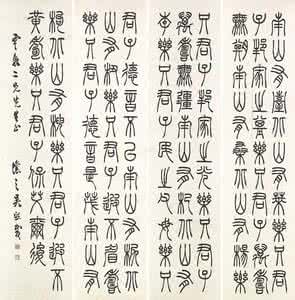 南山有臺北山有萊樂只君
子邦家之基樂只君子萬壽
無期南山有桑北山有楊樂
只君子邦家之光樂只君子
萬壽無疆南山有杞北山有
李樂只君子民之父母樂只
君子德音不已南山有栲北
山有杻樂只君子遐不眉壽
樂只君子德音是茂南山有
枸北山有楰樂只君子遐不
黃耇樂只君子保艾爾後
二兄先生正